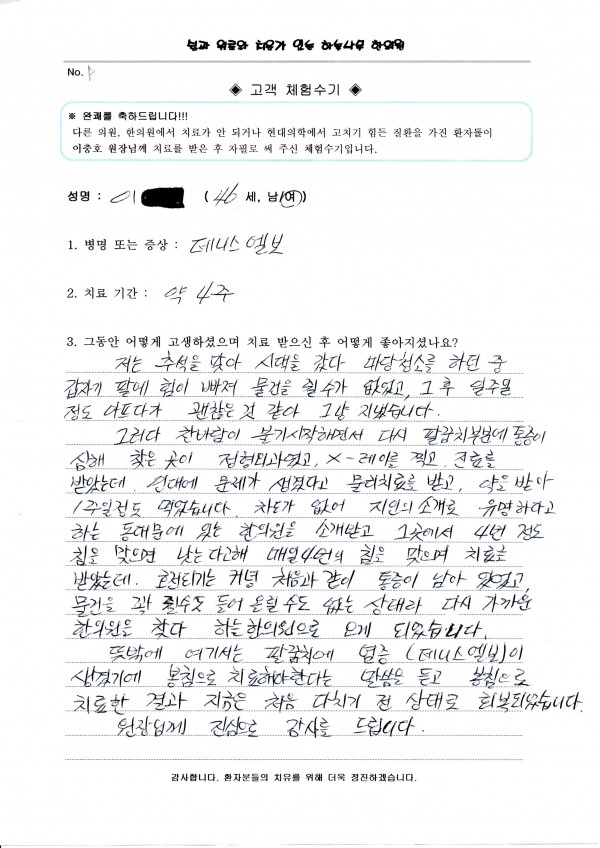 No.
◈ 고객 체험수기 ◈
※ 완쾌를 축하드립니다!!!
다른 의원, 한의원에서 치료가 안 되거나 현대의학에서 고치기 힘든 질환을 가진 환자들이
이충호 원장님께 치료를 받은 후 자필로 써 주신 체험수기입니다.
성명 : 이 ( 46 세, 남/여)
1. 병명 또는 증상 : 테니스엘보
2. 치료 기간 : 약 4주
3. 그동안 어떻게 고생하셨으며 치료 받으신 후 어떻게 좋아지셨나요?
저는 추석을 맞아 시댁을 갔다 마당청소를 하던 중
갑자기 팔에 힘이 빠져 물건을 쥘수가 없었고, 그 후 일주일
정도 아프다가 괜찮은것 같아 그냥 지냈습니다.
그러다 찬바람이 불기시작하면서 다시 팔꿈치부분에 통증이
심해 찾은 곳이 정형외과였고, X-레이를 찍고 진료를
받았는데. 인대에 문제가 생겼다고 물리치료를 받고, 약을 받아
1주일정도 먹었습니다. 차도가 없어 지인의 소개로 유명하다고
하는 동대문에 있는 한의원을 소개받고 그곳에서 4번 정도
침을 맞으면 낫는다고해 매일4번의 침을 맞으며 치료를
받았는데. 호전되기는 커녕 처음과 같이 통증이 남아 있었고,
물건을 꽉 쥘수도 들어 올릴 수도 없는 상태라 다시 가까운
한의원을 찾다 하늘한의원으로 오게 되었습니다.
뜻밖에 여기서는 팔꿈치에 염증 (테니스엘보)이
생겼기에 봉침으로 치료해야한다는 말씀을 듣고 봉침으로
치료한 결과 지금은 처음 다치기 전 상태로 회복되었습니다.
원장님께 진심으로 감사를 드립니다.
감사합니다. 환자분들의 치유를 위해 더욱 정진하겠습니다.